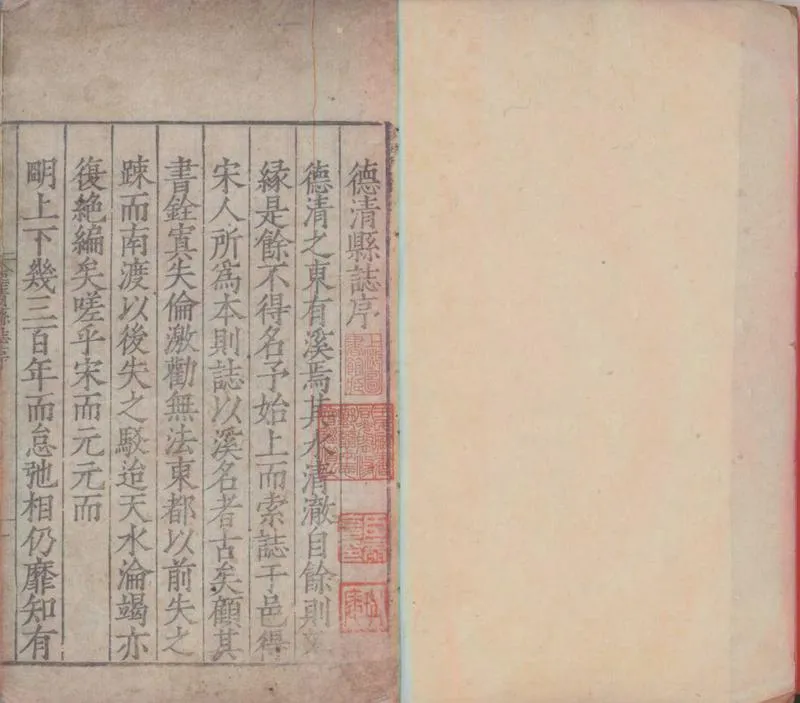 德清縣誌序
德清之東有溪焉其水清澈目餘則
緣是餘不得名予始上而索誌于邑得
宋人所爲本則誌以溪名者古矣顧其
書銓寘失倫激勸無法東都以前失之
踈而南渡以後失之駁迨天水淪竭亦
復絶編矣嗟乎宋而元元而
明上下幾三百年而怠弛相仍靡知有
上海圖書館藏